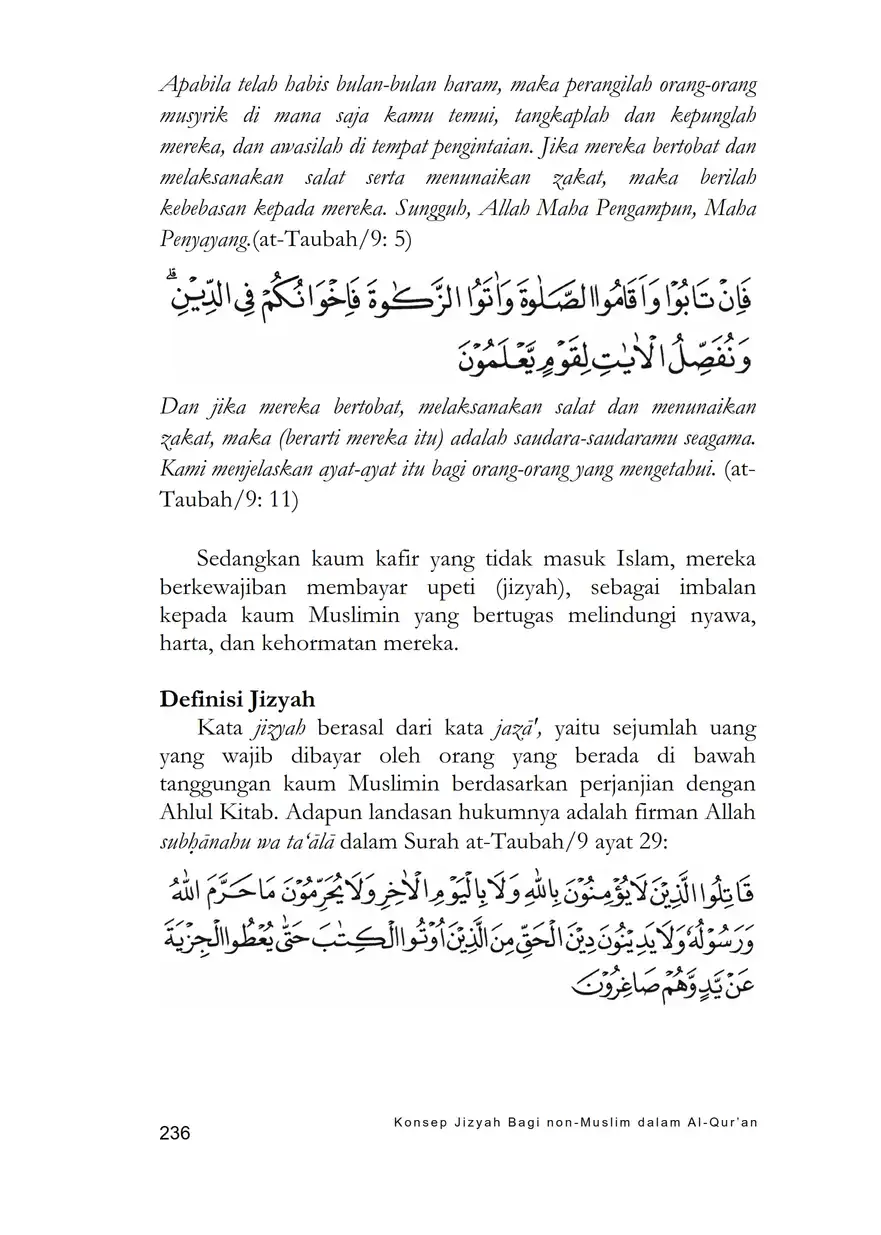 Apabila telah habis bulan-bulan haram, maka perangilah orang-orang
musyrik di mana saja kamu temui, tangkaplah dan kepunglah
mereka, dan awasilah di tempat pengintaian. Jika mereka bertobat dan
melaksanakan salat serta menunaikan zakat, maka berilah
kebebasan kepada mereka. Sungguh, Allah Maha Pengampun, Maha
Penyayang.(at-Taubah/9: 5)
فَاِنْ تَابُوْا وَاَقَامُوا الصَّلٰوةَ وَاٰتَوُا الزَّكٰوةَ فَاِخْوَانُكُمْ فِى الدِّيْنِ ۗ
وَنُفَصِّلُ الْاٰيٰتِ لِقَوْمٍ يَّعْلَمُوْنَ
Dan jika mereka bertobat, melaksanakan salat dan menunaikan
zakat, maka (berarti mereka itu) adalah saudara-saudaramu seagama.
Kami menjelaskan ayat-ayat itu bagi orang-orang yang mengetahui. (at-
Taubah/9: 11)
Sedangkan kaum kafir yang tidak masuk Islam, mereka
berkewajiban membayar upeti (jizyah), sebagai imbalan
kepada kaum Muslimin yang bertugas melindungi nyawa,
harta, dan kehormatan mereka.
Definisi Jizyah
Kata jizyah berasal dari kata jazā', yaitu sejumlah uang
yang wajib dibayar oleh orang yang berada di bawah
tanggungan kaum Muslimin berdasarkan perjanjian dengan
Ahlul Kitab. Adapun landasan hukumnya adalah firman Allah
subḥānahu wa ta‘ālā dalam Surah at-Taubah/9 ayat 29:
قَاتِلُوا الَّذِيْنَ لَا يُؤْمِنُوْنَ بِاللّٰهِ وَلَا بِالْيَوْمِ الْاٰخِرِ وَلَا يُحَرِّمُوْنَ مَا حَرَّمَ اللّٰهُ
وَرَسُوْلُهٗ وَلَا يَدِيْنُوْنَ دِيْنَ الْحَقِّ مِنَ الَّذِيْنَ اُوْتُوا الْكِتٰبَ حَتّٰى يُعْطُوا الْجِزْيَةَ
عَنْ يَّدٍ وَّهُمْ صَاغِرُوْنَ
236
Konsep Jizyah Bagi non-Muslim dalam Al-Qur'an